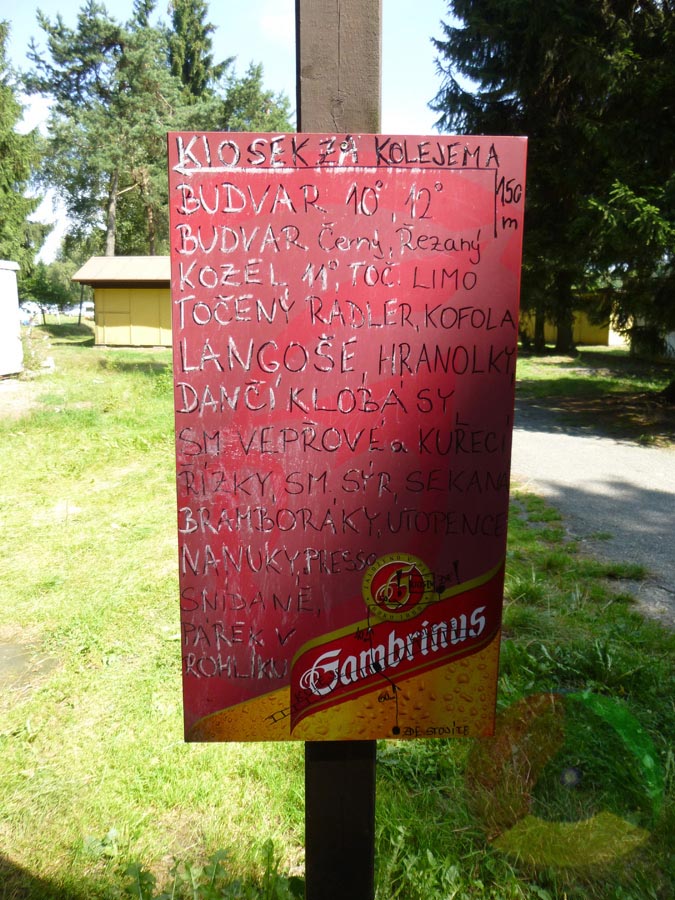 KIOSEK ZA KOLEJEMA
150 m
BUDVAR 10°, 12°
BUDVAR Černý, Řezaný
KOZEL 11°, TOČ. LIMO
TOČENÝ RADLER, KOFOLA
LANGOŠE, HRANOLKY,
DANČÍ KLOBÁSY,
SM. VEPŘOVÉ a KUŘECÍ
ŘÍZKY, SM. SÝR, SEKANÁ
BRAMBORÁKY, UTOPENCE
NANUKY, PRESSO
SNÍDANĚ,
PÁREK V
ROHLÍKU
Gambrinus
ZDE STOJÍTE